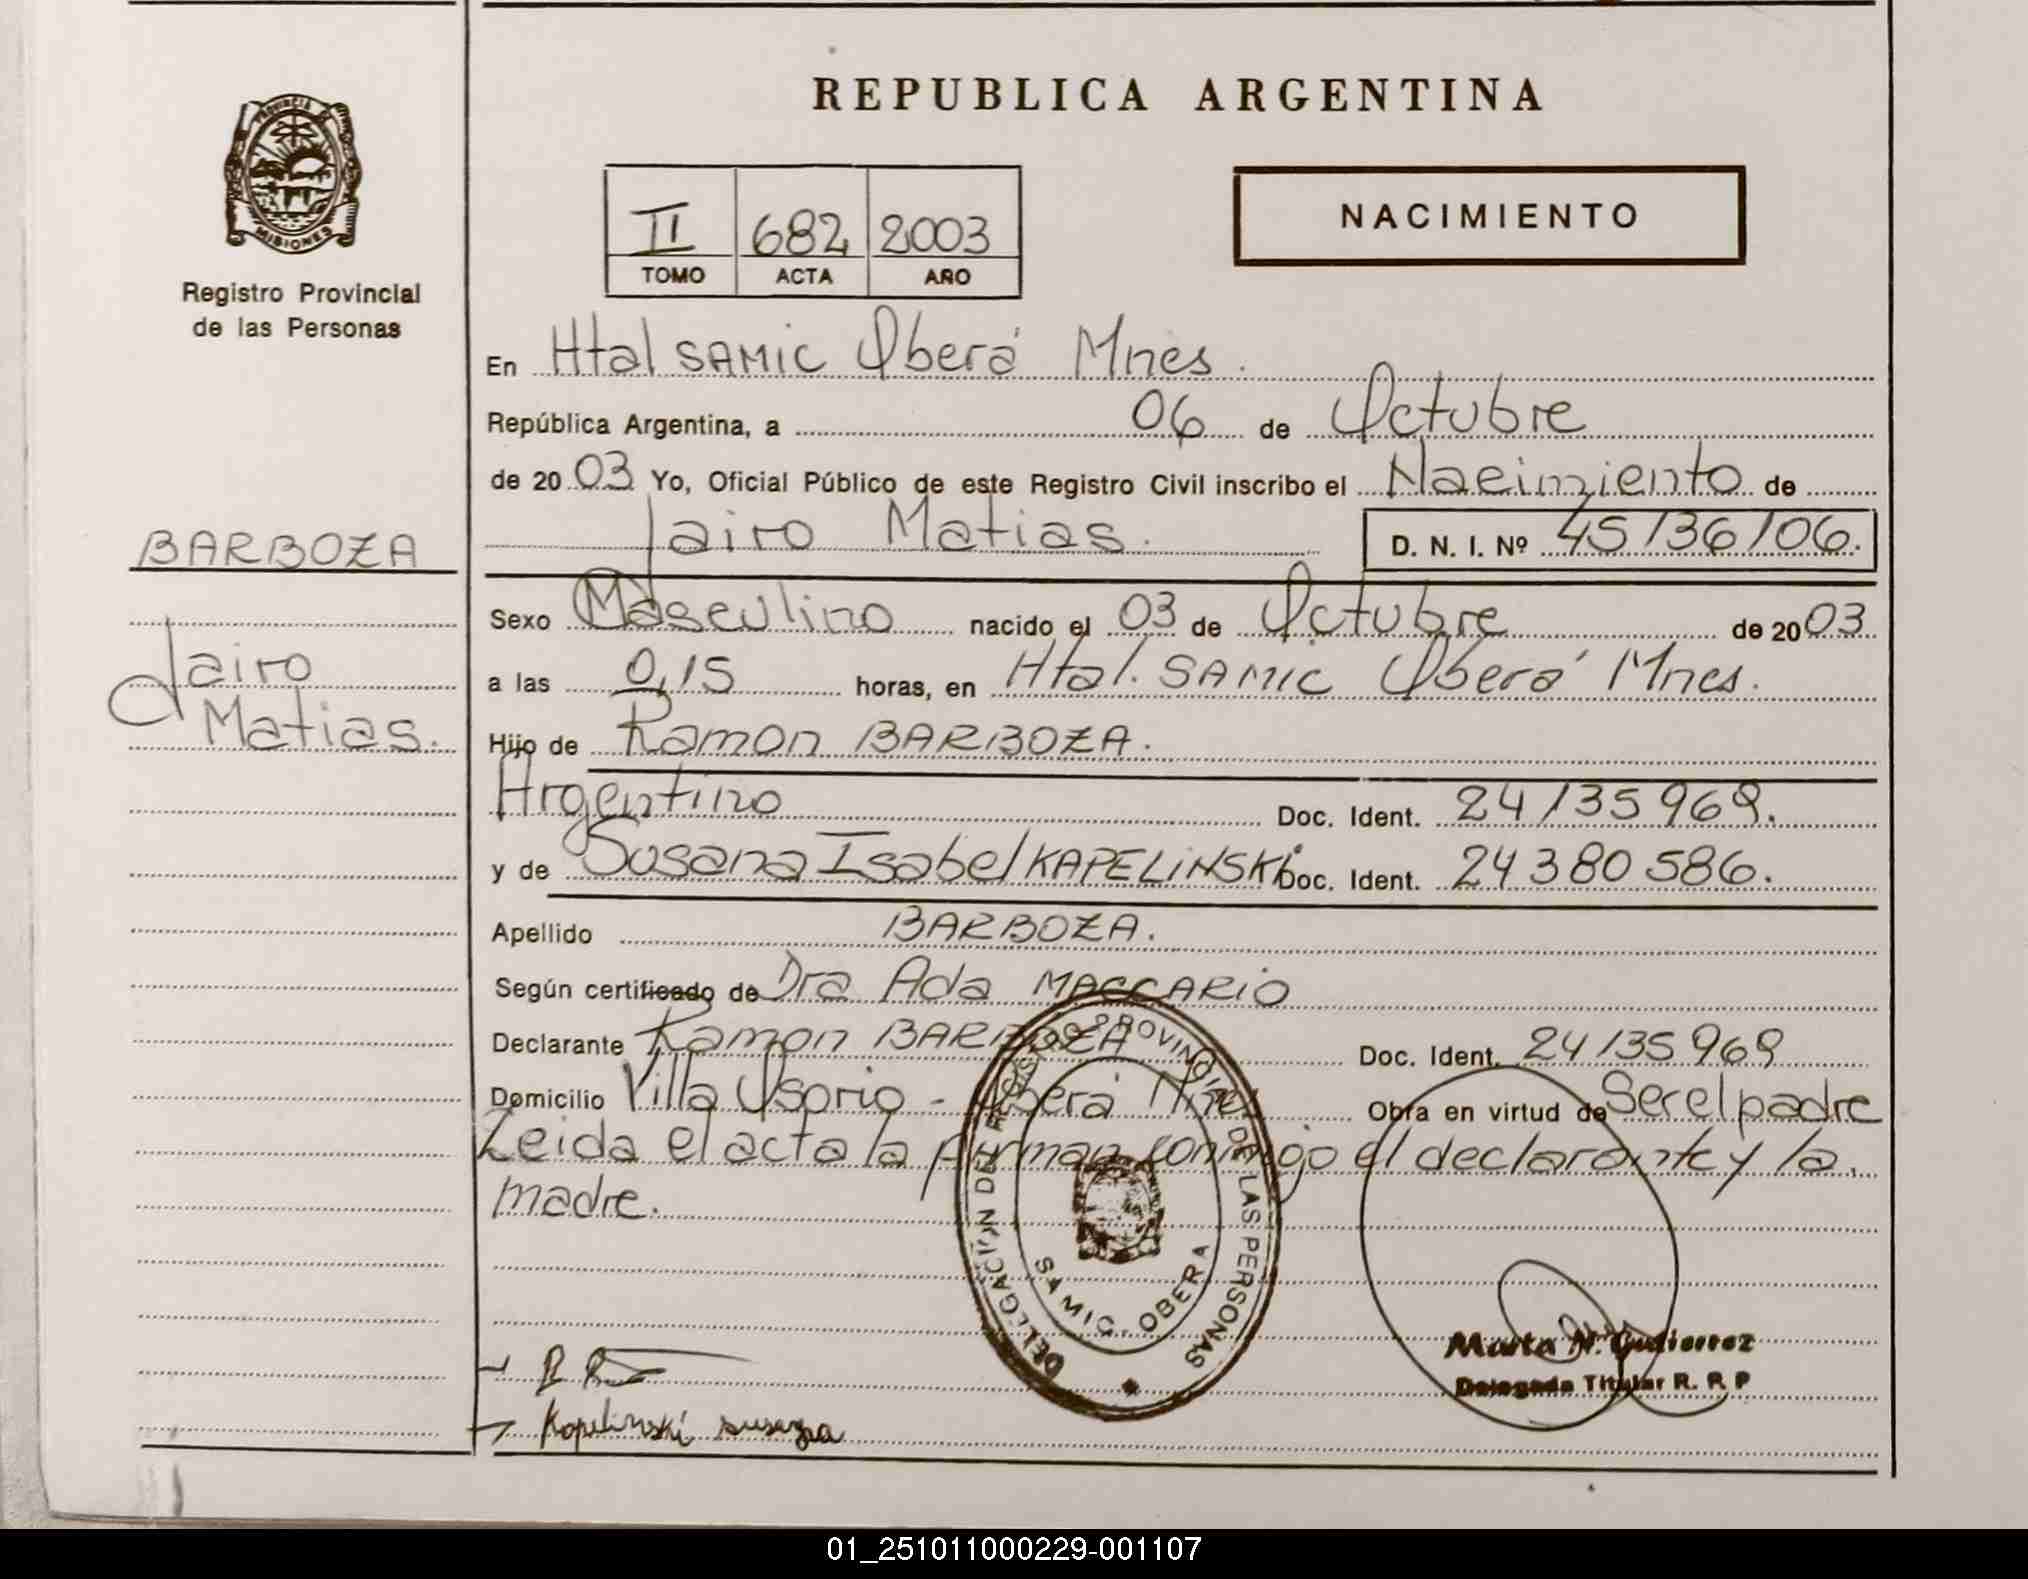 REPUBLICA ARGENTINA
PROVINCIA DE MISIONES
Registro Provincial
de las Personas
II 682 2003
TOMO ACTA AÑO
NACIMIENTO
En Htal SAMIC Oberá Mnes.
República Argentina, a 06 de Octubre
de 2003 Yo, Oficial Público de este Registro Civil inscribo el Nacimiento de
Jairo Matias.
D. N. I. Nº 45136106.
BARBOZA
Jairo
Matias.
Sexo Masculino nacido el 03 de Octubre de 2003
a las 0,15 horas, en Htal. SAMIC Oberá Mnes.
Hijo de Ramon BARBOZA.
Argentino Doc. Ident. 24135969.
y de Susana Isabel KAPELiNSKi Doc. Ident. 24380586.
Apellido BARBOZA.
Según certificado de Dra Ada MACCARiO
Declarante Ramon BARBOZA Doc. Ident. 24135969
Domicilio Villa Osorio - Oberá Mnes Obra en virtud de Ser el padre
Leida el acta la firman conmigo el declarante y la
madre.
DELEGACION DEL REGISTRO PROVINCIAL DE LAS PERSONAS
SAMIC. OBERA
Marta N. Gutierrez
Delegada Titular R. P. P
Kapelinski susana
01_251011000229-001107